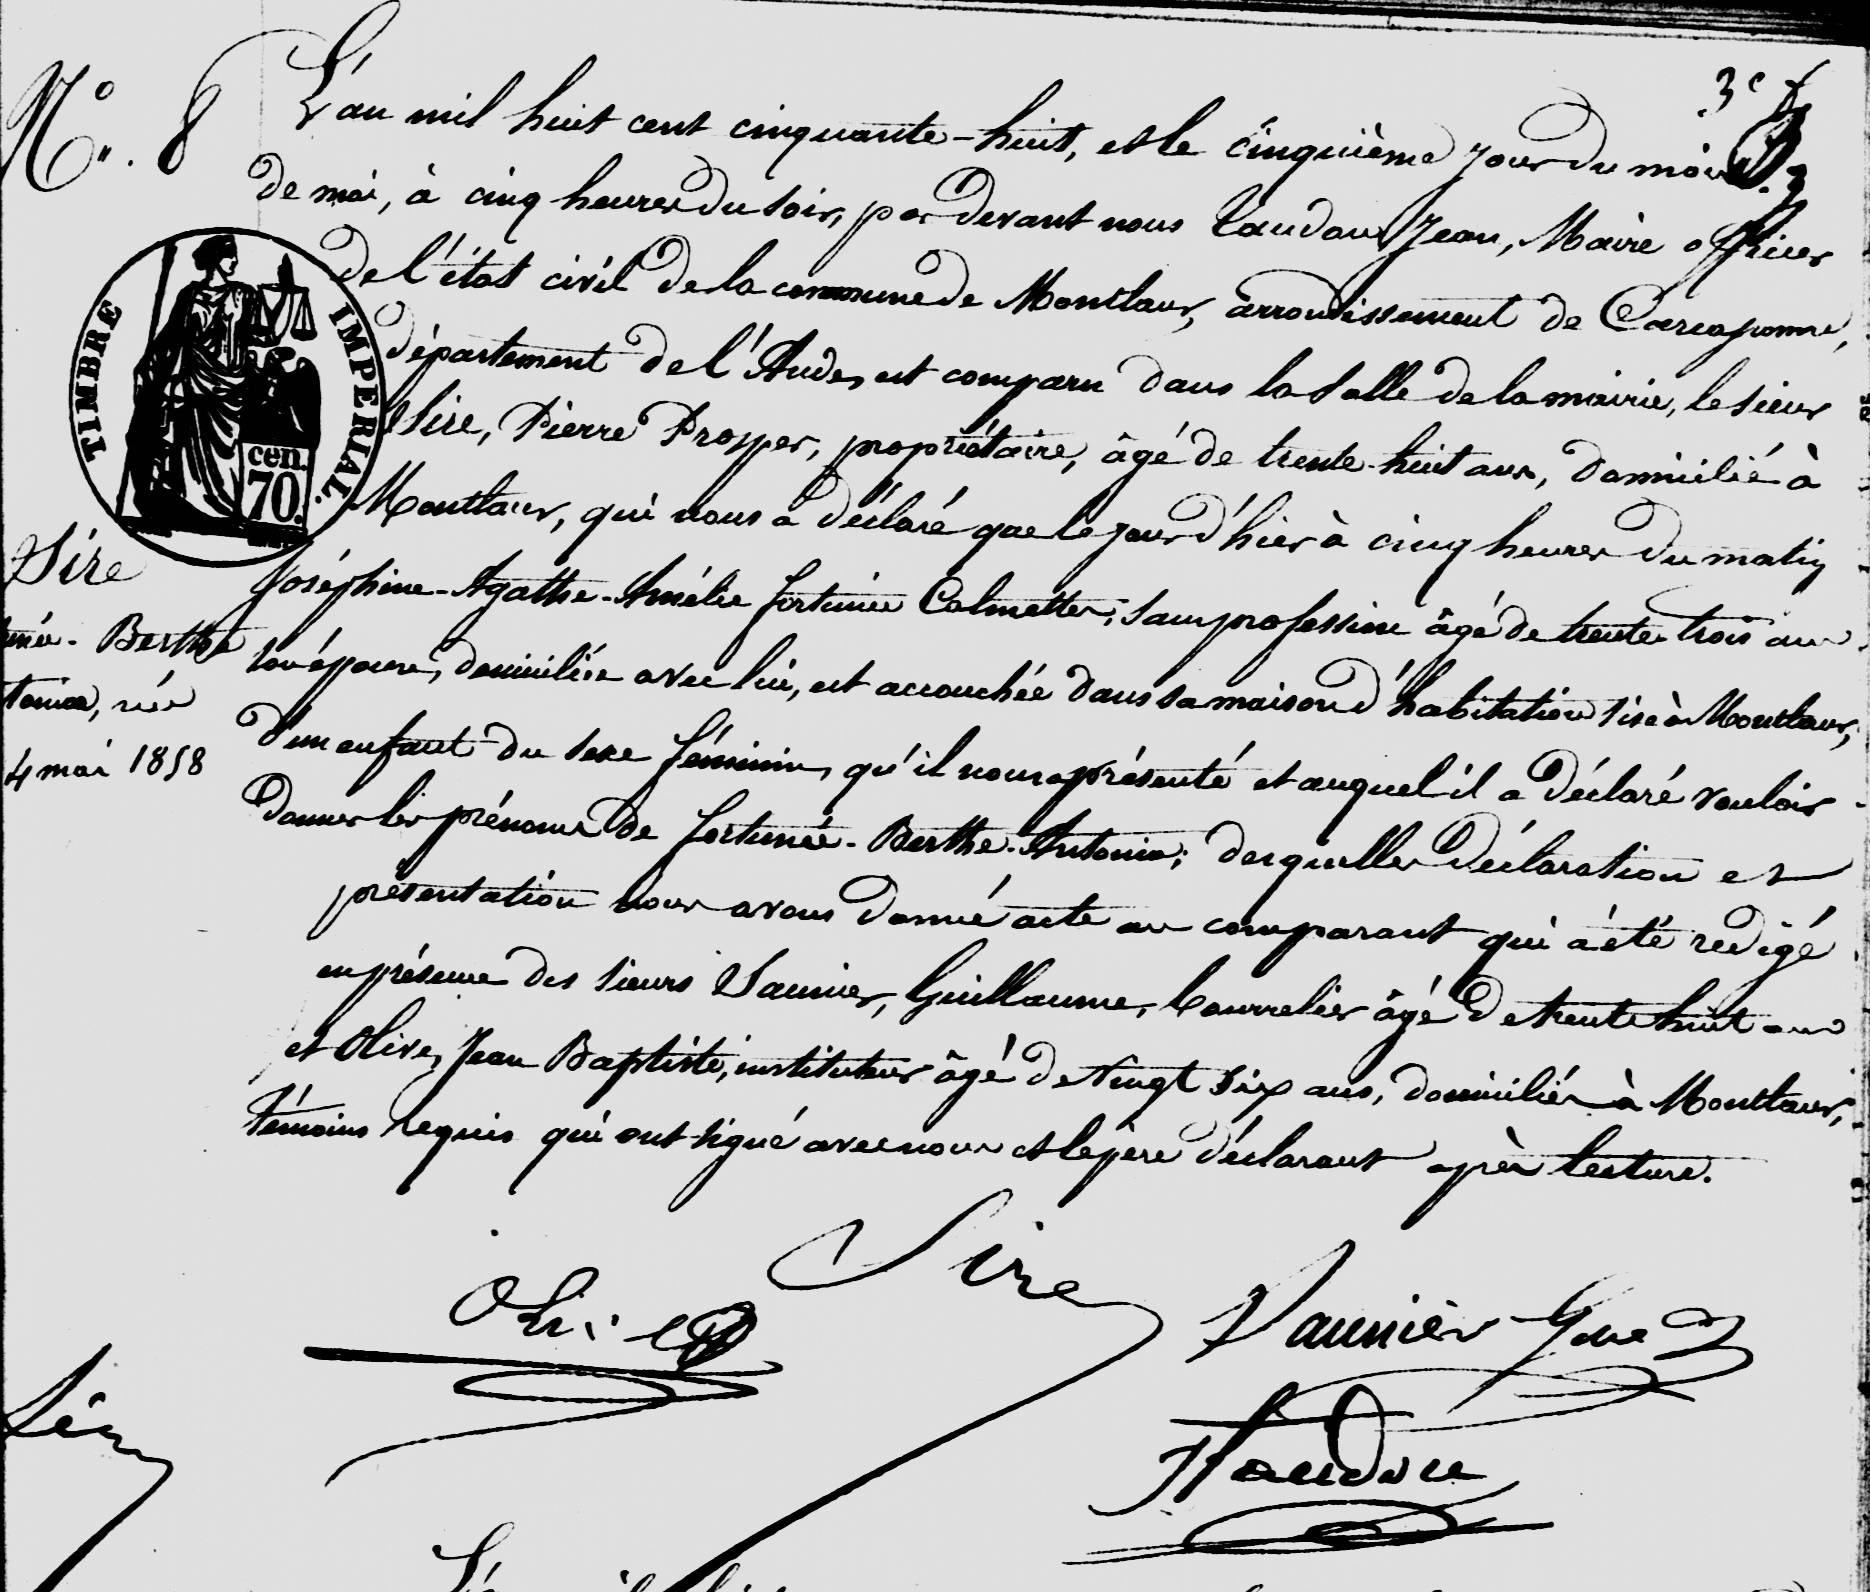 N° 8
3e
L'an mil huit cent cinquante-huit, et le cinquième jour du mois
de mai, à cinq heures du soir, par devant nous Jean, Maire officier
de l'état civil de la commune de Montlaur, arrondissement de Carcassonne,
département de l'Aude, est comparu dans la salle de la mairie, le sieur
Sire, Pierre Prosper, propriétaire, âgé de trente-huit ans, domicilié à
Montlaur, qui nous a déclaré que le jour d'hier à cinq heures du matin
Joséphine-Agathe-Amélie fortunée Calmettes, sans profession âgé de trente trois ans
son épouse, domiciliée avec lui, est accouchée dans sa maison d'habitation sise à Montlaur,
d'un enfant du sexe féminin, qu'il nous a présenté et auquel il a déclaré vouloir
donner les prénoms de fortunée-Berthe-Antonia; desquelles déclaration et
présentation nous avons donné acte au comparant qui a été rédigé
en présence des sieurs Saunier, Guillaume, bourrelier âgé de trente huit ans
et Olive, Jean Baptiste, instituteur âgé de vingt six ans, domiciliés à Montlaur,
témoins requis qui ont signé avec nous et le père déclarant après lecture.
TIMBRE IMPERIAL.
cen.
70.
Sire
unée-Berthe
tonia, née
4 mai 1858
Sire
Olive
Saunièr Gme